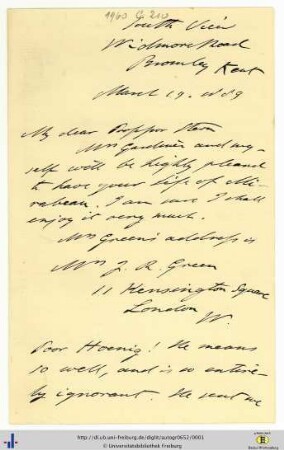 1960 G 210
South View
Widmore Road
Bromley Kent
March 19. 1889
My dear Professor Stern
Mrs Gardiner and my-
self will be highly pleased
to have your Life of Mi-
rabeau. I am sure I shall
enjoy it very much.
Mrs Green's address is
Mrs J. R. Green
11 Kensington Square
London
W.
Poor Hoenig! He means
so well, and is so entire-
ly ignorant. He sent me
http://dl.ub.uni-freiburg.de/diglit/autogr0652/0001
© Universitätsbibliothek Freiburg